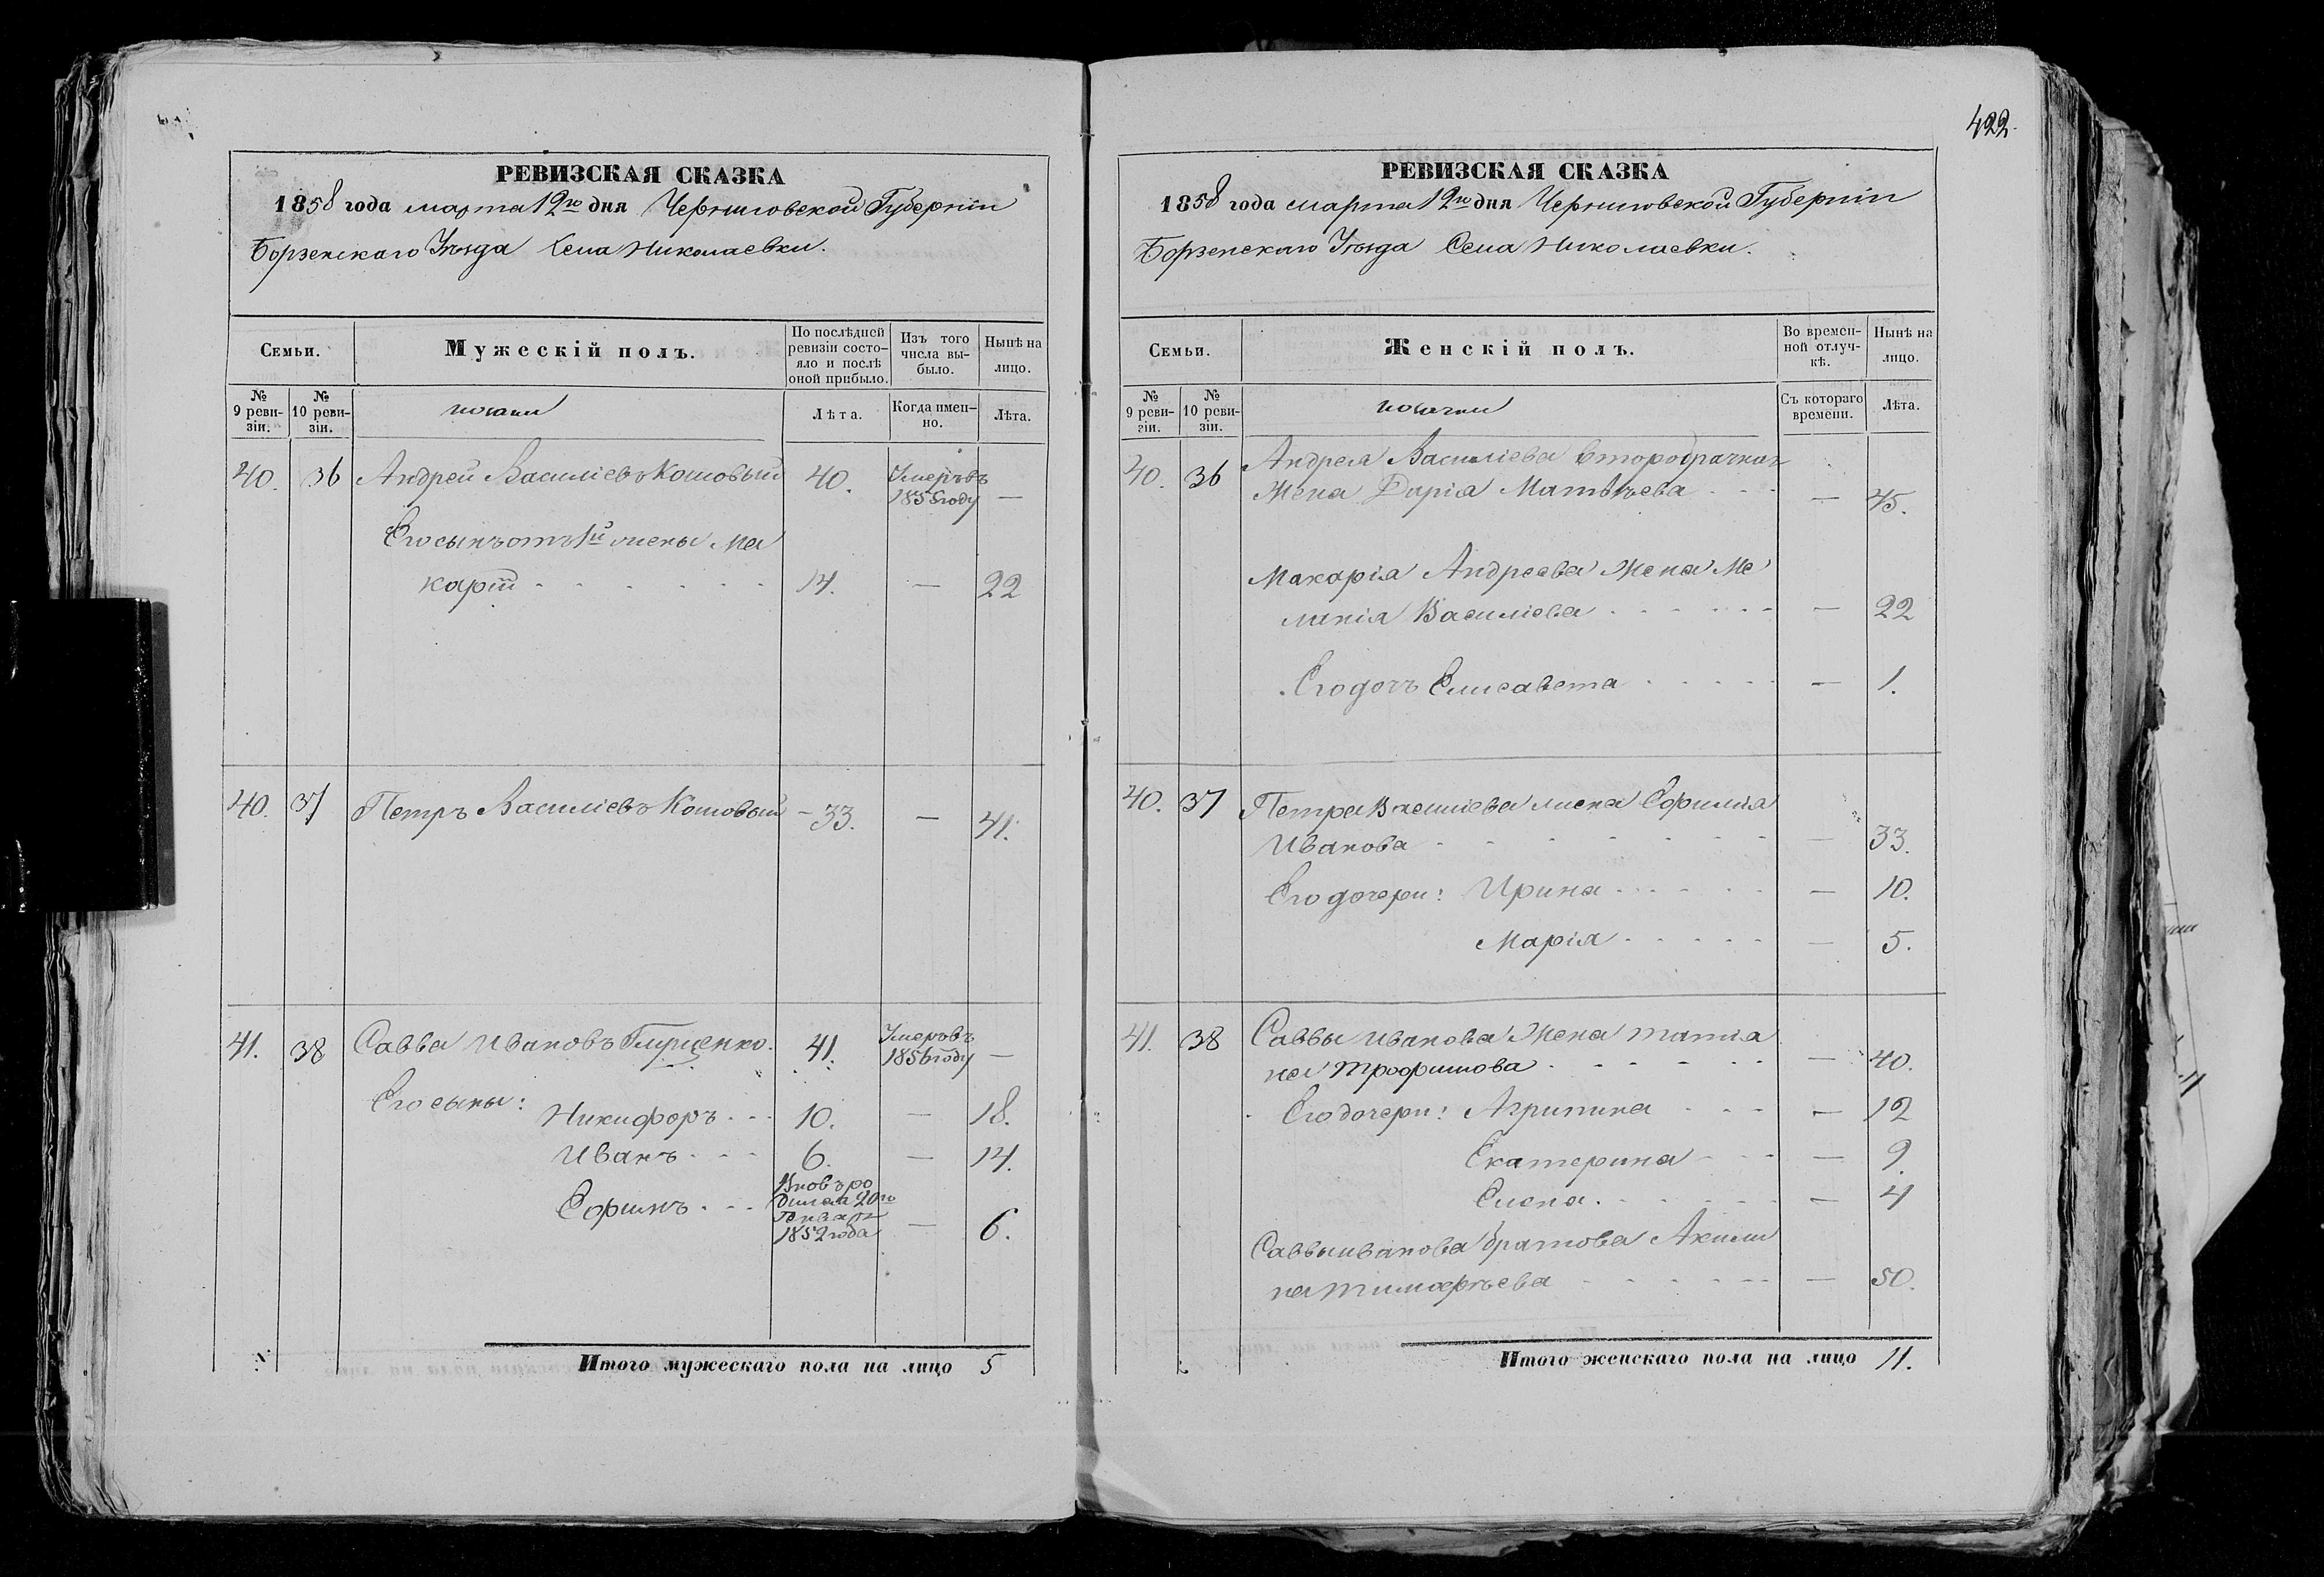 422.
РЕВИЗСКАЯ СКАЗКА
1858 года марта 12го дня Черниговской Губерніи
Борзенскаго Уѣзда Села Николаевки.
Семьи.
Мужескій полъ.
По послѣдней ревизіи состо-
яло и послѣ оной прибыло.
Изъ того числа вы-
было.
Нынѣ на лицо.
№ 9 реви-
зіи.
№ 10 реви-
зіи.
Лѣта.
Когда имен-
но.
Лѣта.
40. 36 Андрей Василіевъ Кошовый 40. Умеръ въ 1855 году —
Его сынъ отъ 1й жены Ма
карій 14. — 22
40. 37 Петръ Василіевъ Кошовый — 33. — 41.
41. 38 Савва Ивановъ Глущенко. 41. Умеръ въ 1856 году —
Его сыны:
Никифоръ 10. — 18.
Иванъ 6. — 14.
Вновь ро
дился 20го
1852 года
— 6.
Итого мужескаго пола на лицо 5
РЕВИЗСКАЯ СКАЗКА
1858 года марта 12го дня Черниговской Губерніи
Борзенскаго Уѣзда Села Николаевки.
Семьи.
Женскій полъ.
Во времен-
ной отлуч-
кѣ.
Нынѣ на лицо.
№ 9 реви-
зіи.
№ 10 реви-
зіи.
Съ котораго времени.
Лѣта.
40. 36 Андрея Василіева второбрачная
Жена Дарія Матвѣева — 45.
Макарія Андреева Жена Ме
ланія Василіева — 22
Его дочь Елисавета — 1.
40. 37 Петра Василіева жена Ефимія
Иванова — 33.
Его дочери: Ирина — 10.
Марія — 5.
41. 38 Саввы Иванова Жена Татіа
на Трофимова — 40.
Его дочери: Агрипина — 12
Екатерина — 9.
Елена — 4
Саввы Иванова братова Акили
на — 50.
Итого женскаго пола на лицо 11.